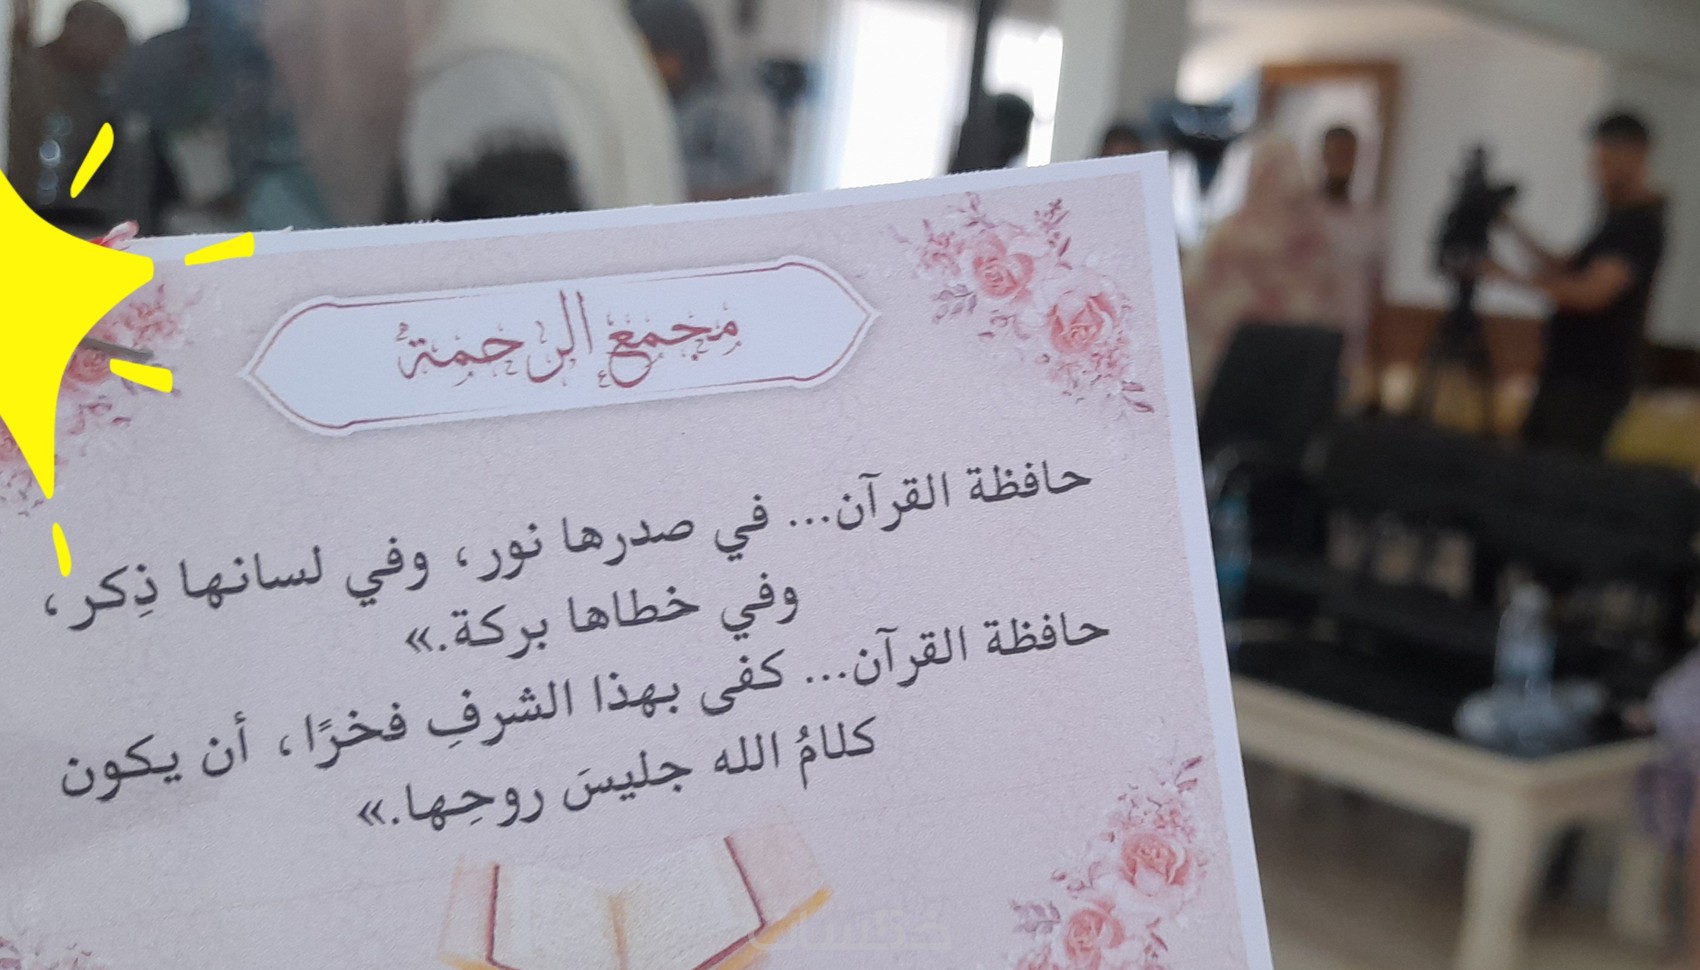 مجمع الرحمة
حافظة القرآن... في صدرها نور، وفي لسانها ذِكر،
وفي خطاها بركة.»
حافظة القرآن... كفى بهذا الشرفِ فخرًا، أن يكون
كلامُ الله جليسَ روحِها.»
خمسات